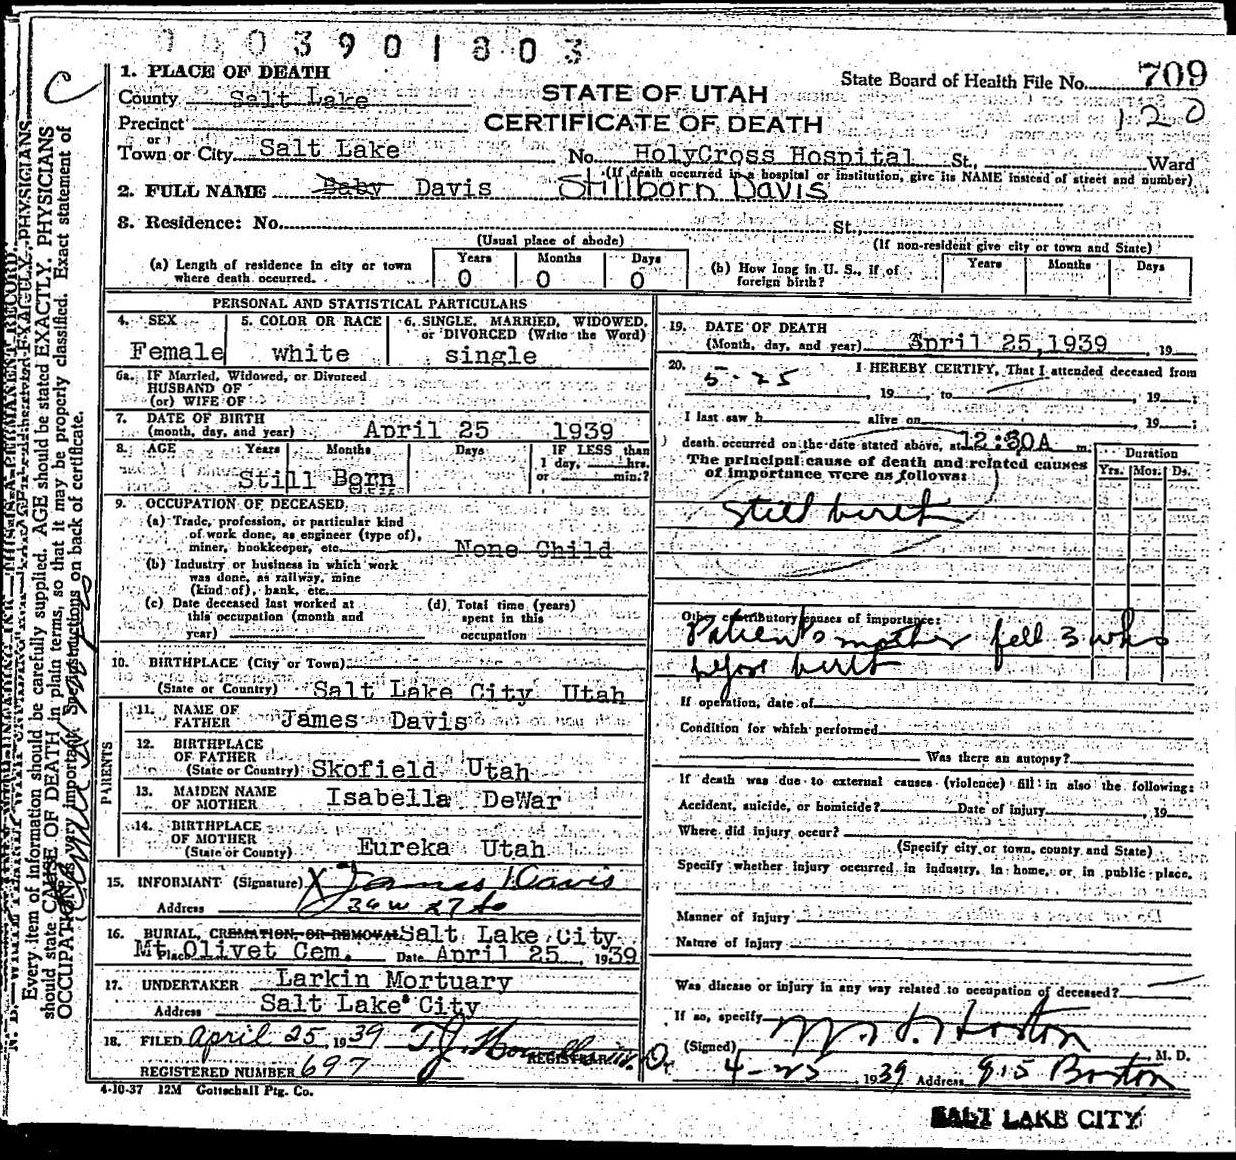 0003901803
1. PLACE OF DEATH
State Board of Health File No. 709
County Salt Lake
STATE OF UTAH
120
Precinct
CERTIFICATE OF DEATH
or
Town or City Salt Lake No. HolyCross Hospital St., Ward
(If death occurred in a hospital or institution, give its NAME instead of street and number)
2. FULL NAME Baby Davis Stillborn Davis
3. Residence: No. St.,
(Usual place of abode) (If non-resident give city or town and State)
(a) Length of residence in city or town where death occurred. Years 0 Months 0 Days 0
(b) How long in U. S., if of foreign birth? Years Months Days
PERSONAL AND STATISTICAL PARTICULARS
4. SEX 5. COLOR OR RACE 6. SINGLE, MARRIED, WIDOWED, or DIVORCED (Write the Word)
Female white single
6a. IF Married, Widowed, or Divorced
HUSBAND OF
(or) WIFE OF
7. DATE OF BIRTH
(month, day, and year) April 25 1939
8. AGE Years Months Days IF LESS than
1 day, hrs.
or min.?
Still Born
9. OCCUPATION OF DECEASED
(a) Trade, profession, or particular kind
of work done, as engineer (type of),
miner, bookkeeper, etc. None Child
(b) Industry or business in which work
was done, as railway, mine
(kind of), bank, etc.
(c) Date deceased last worked at
this occupation (month and
year)
(d) Total time (years)
spent in this
occupation
10. BIRTHPLACE (City or Town)
(State or Country) Salt Lake City Utah
PARENTS
11. NAME OF
FATHER James Davis
12. BIRTHPLACE
OF FATHER
(State or Country) Skofield Utah
13. MAIDEN NAME
OF MOTHER Isabella DeWar
14. BIRTHPLACE
OF MOTHER
(State or Country) Eureka Utah
15. INFORMANT (Signature) X James Davis
Address 36 W 27 So
16. BURIAL, CREMATION, OR REMOVAL Salt Lake City
Place Mt. Olivet Cem. Date April 25, 1939
17. UNDERTAKER Larkin Mortuary
Address Salt Lake City
18. FILED April 25, 1939 T.J. Howell
REGISTRAR
REGISTERED NUMBER 697
4-10-37 12M Gottschall Ptg. Co.
19. DATE OF DEATH
(Month, day, and year) April 25, 1939, 19
20. I HEREBY CERTIFY, That I attended deceased from
5-25, 19 to , 19 ;
I last saw h alive on , 19 ;
death occurred on the date stated above, at 12:30A m.
The principal cause of death and related causes
of importance were as follows:
Duration
Yrs. Mos. Ds.
Still birth
Other contributory causes of importance:
Patient's mother fell 3 wks
before birth
If operation, date of
Condition for which performed
Was there an autopsy?
If death was due to external causes (violence) fill in also the following:
Accident, suicide, or homicide? Date of injury , 19
Where did injury occur?
(Specify city or town, county and State)
Specify whether injury occurred in industry, in home, or in public place.
Manner of Injury
Nature of Injury
Was disease or injury in any way related to occupation of deceased?
If so, specify
(Signed) M. D.
4-25, 1939 Address 915 Boston
SALT LAKE CITY
Every item of information should be carefully supplied. AGE should be stated EXACTLY. PHYSICIANS
should state CAUSE OF DEATH in plain terms, so that it may be properly classified. Exact statement of
OCCUPATION is very important. See instructions on back of certificate.